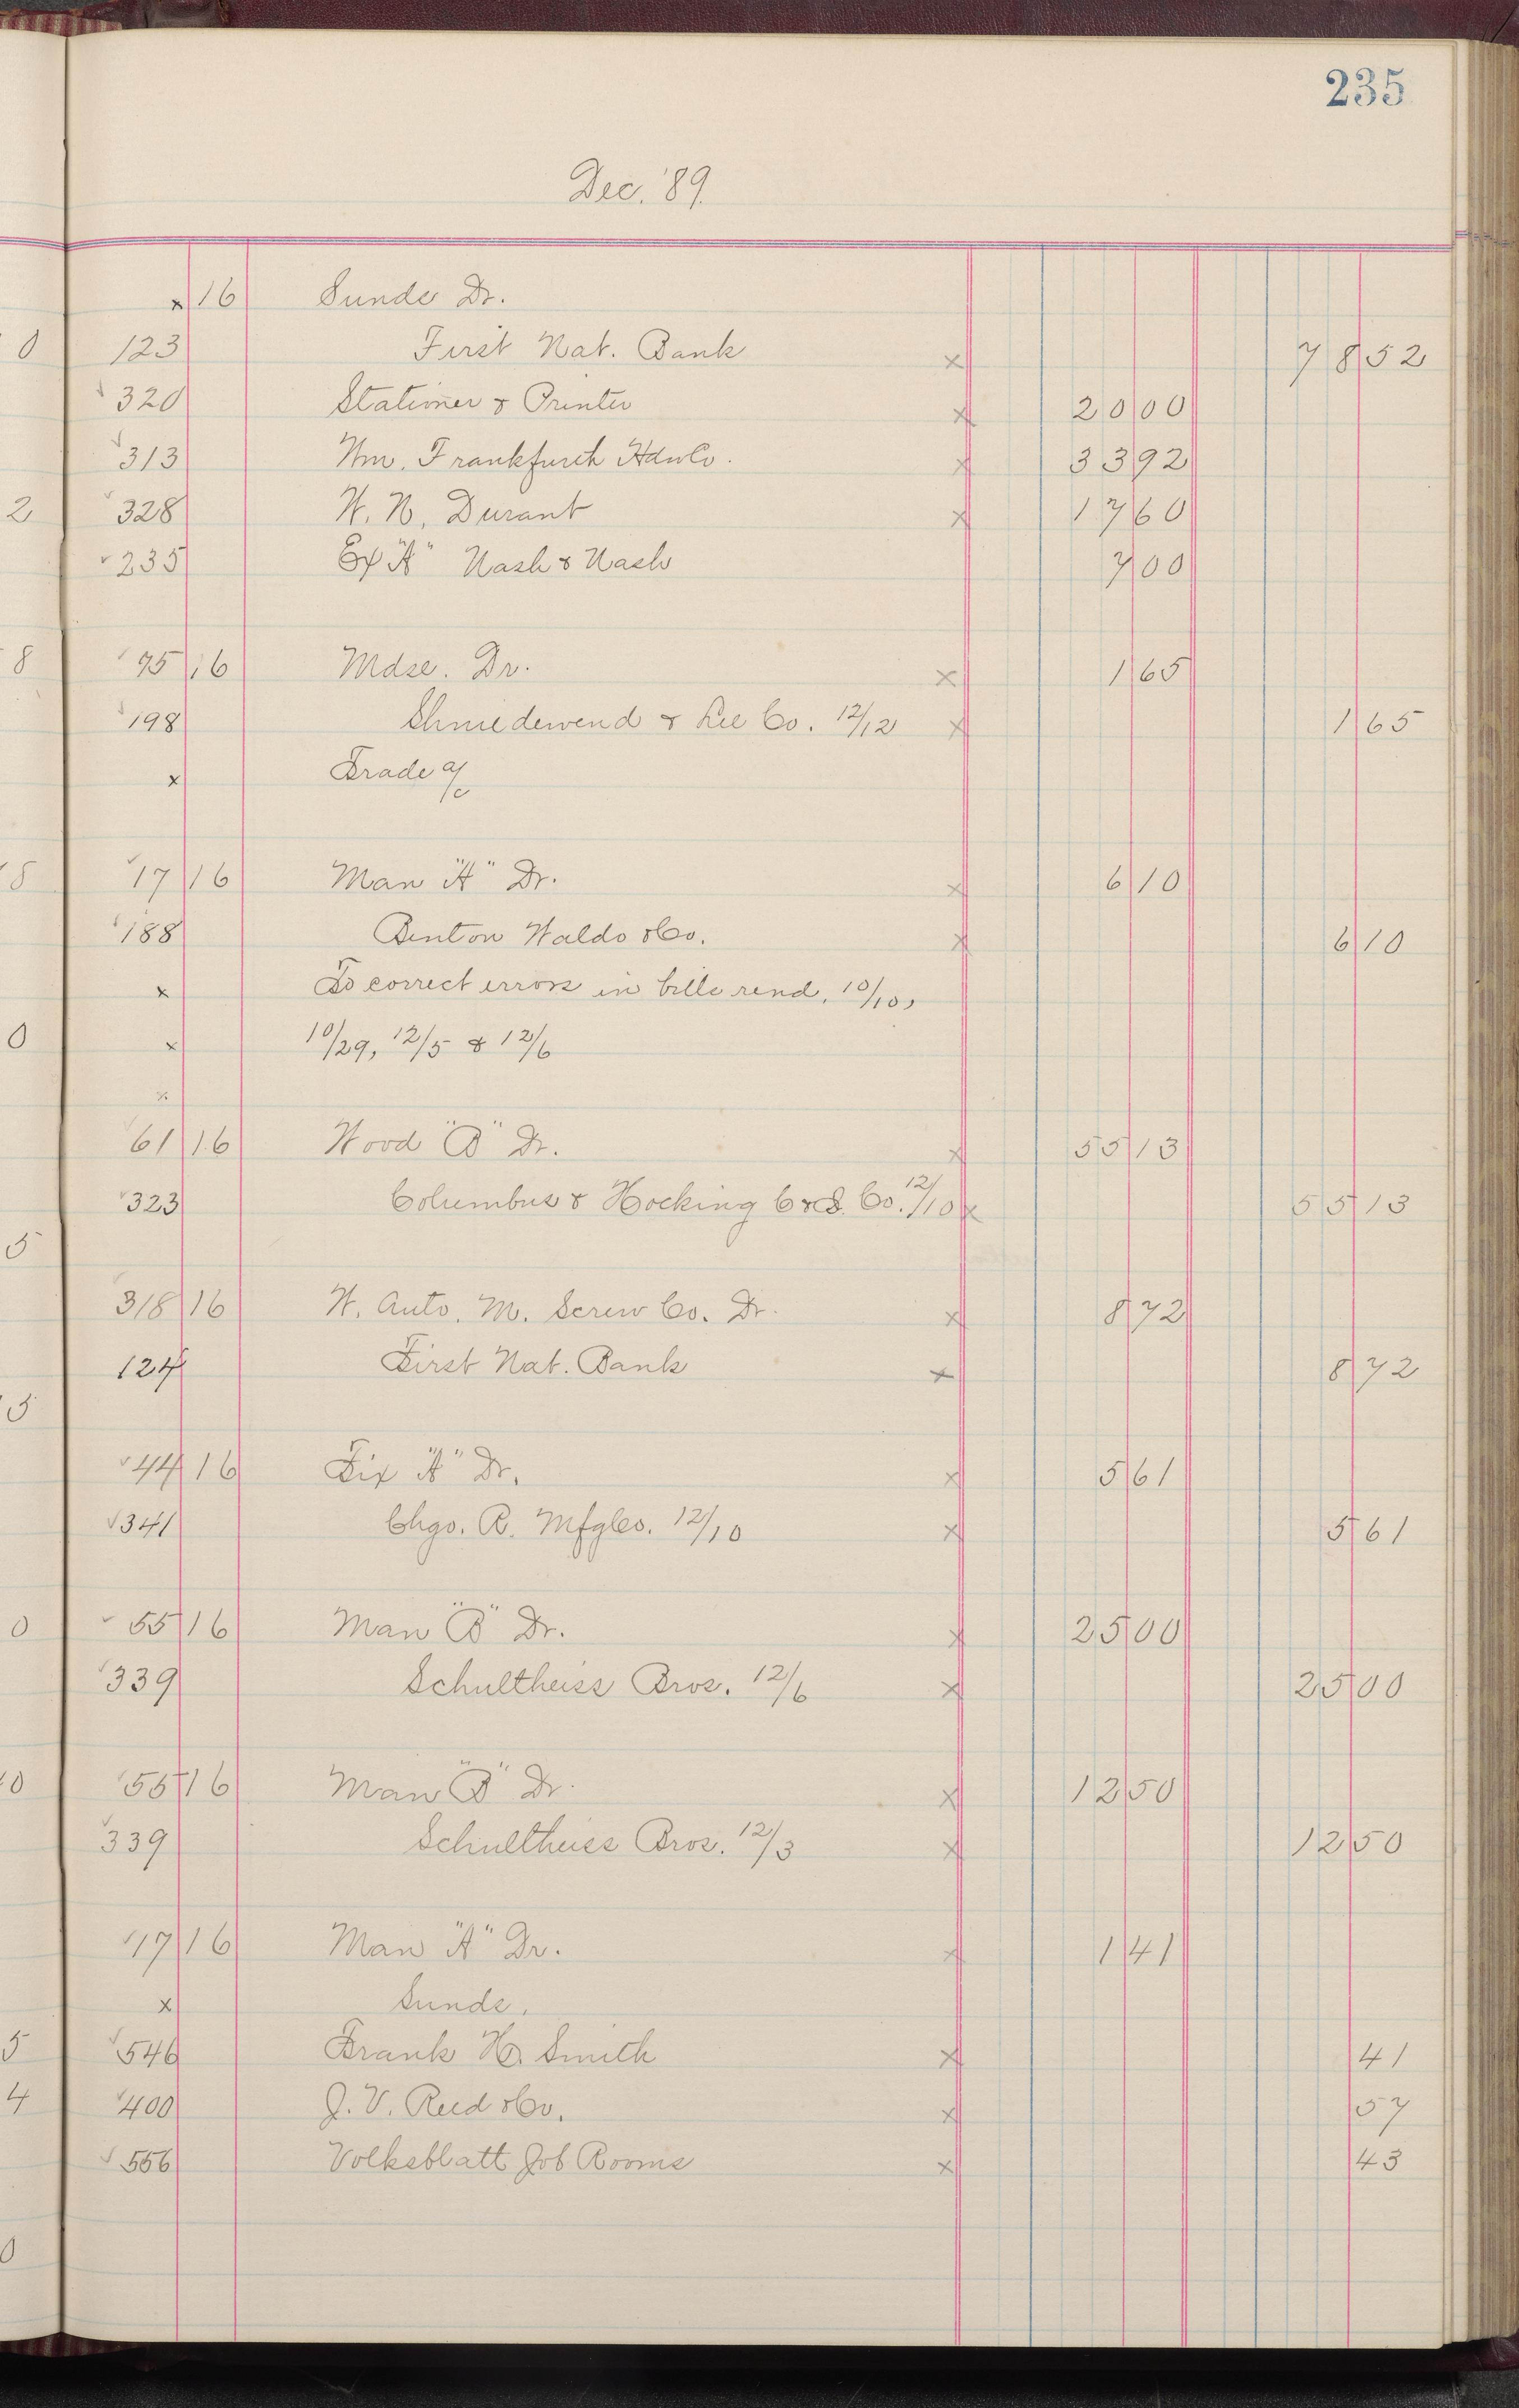 235
Dec. '89.
x 16 Sunds Dr.
0 123 First Nat. Bank x 78 52
320 Stationer & Printer x 20 00
313 Wm. Frankfurth HdwCo. x 33 92
2 328 W. N. Durant x 17 60
235 Ex "A" Nash & Nash 7 00
8 75 16 Mdse. Dr. x 1 65
198 Shniedewend & Lee Co. 12/12 x 1 65
x Trade a/c
17 16 Man "A" Dr. x 6 10
188 Benton Waldo & Co. x 6 10
x To correct errors in bills rend. 10/10,
0 x 10/29, 12/5 & 12/6
x
61 16 Wood "B" Dr. x 55 13
323 Columbus & Hocking C & I. Co. 12/10 x 55 13
5
318 16 W. Auto. M. Screw Co. Dr. x 8 72
124 First Nat. Bank x 8 72
5
44 16 Fix "A" Dr. x 5 61
341 Chgo. R. MfgCo. 12/10 x 5 61
0 55 16 Man "B" Dr. x 25 00
339 Schultheiss Bros. 12/6 x 25 00
0 55 16 Man "B" Dr. x 12 50
339 Schultheiss Bros. 12/3 x 12 50
17 16 Man "A" Dr. x 1 41
x Sunds.
5 546 Frank H. Smith x 41
4 400 J. V. Reed & Co. x 57
556 Volksblatt Job Rooms x 43
0